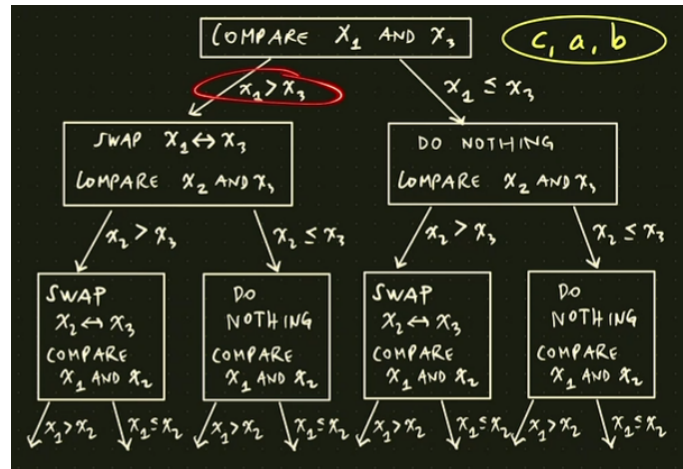 COMPARE X₁ AND X₃
c, a, b
x₁ > x₃
x₁ ≤ x₃
SWAP x₁ ↔ x₃
COMPARE x₂ AND x₃
DO NOTHING
COMPARE x₂ AND x₃
x₂ > x₃
x₂ ≤ x₃
x₂ > x₃
x₂ ≤ x₃
SWAP
x₂ ↔ x₃
COMPARE
x₁ AND x₂
DO
NOTHING
COMPARE
x₁ AND x₂
SWAP
x₂ ↔ x₃
COMPARE
x₁ AND x₂
DO
NOTHING
COMPARE
x₁ AND x₂
x₁ > x₂
x₁ ≤ x₂
x₁ > x₂
x₁ ≤ x₂
x₁ > x₂
x₁ ≤ x₂
x₁ > x₂
x₁ ≤ x₂